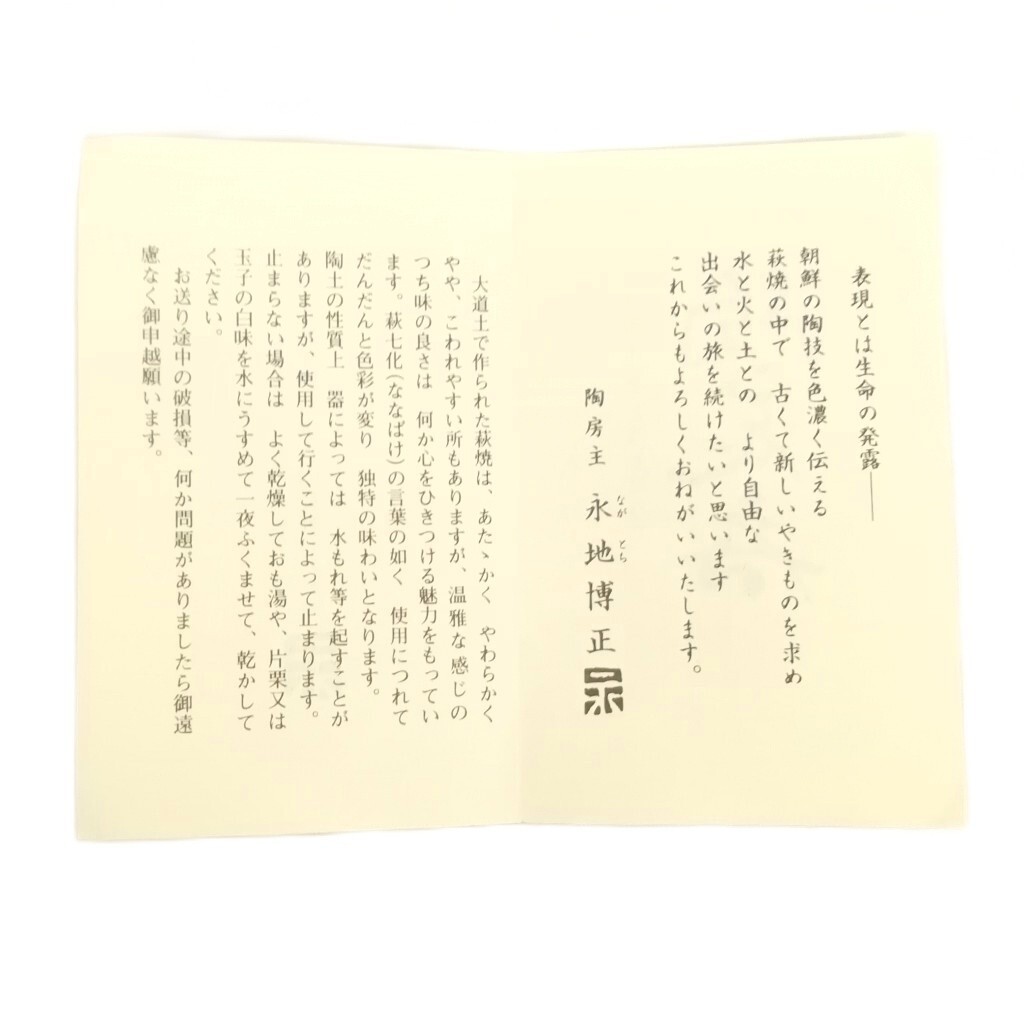 表現とは生命の発露――
朝鮮の陶技を色濃く伝える
萩焼の中で　古くて新しいやきものを求め
水と火と土との　より自由な
出会いの旅を続けたいと思います
これからもよろしくおねがいいたします。
陶房主　永地博正
なが　とち
大道土で作られた萩焼は、あたゝかく　やわらかく
やや、こわれやすい所もありますが、温雅な感じの
つち味の良さは　何か心をひきつける魅力をもってい
ます。萩七化(ななばけ)の言葉の如く　使用につれて
だんだんと色彩が変り　独特の味わいとなります。
陶土の性質上　器によっては　水もれ等を起すことが
ありますが、使用して行くことによって止まります。
止まらない場合は　よく乾燥しておも湯や、片栗又は
玉子の白味を水にうすめて一夜ふくませて、乾かして
ください。
お送り途中の破損等、何か問題がありましたら御遠
慮なく御申越願います。